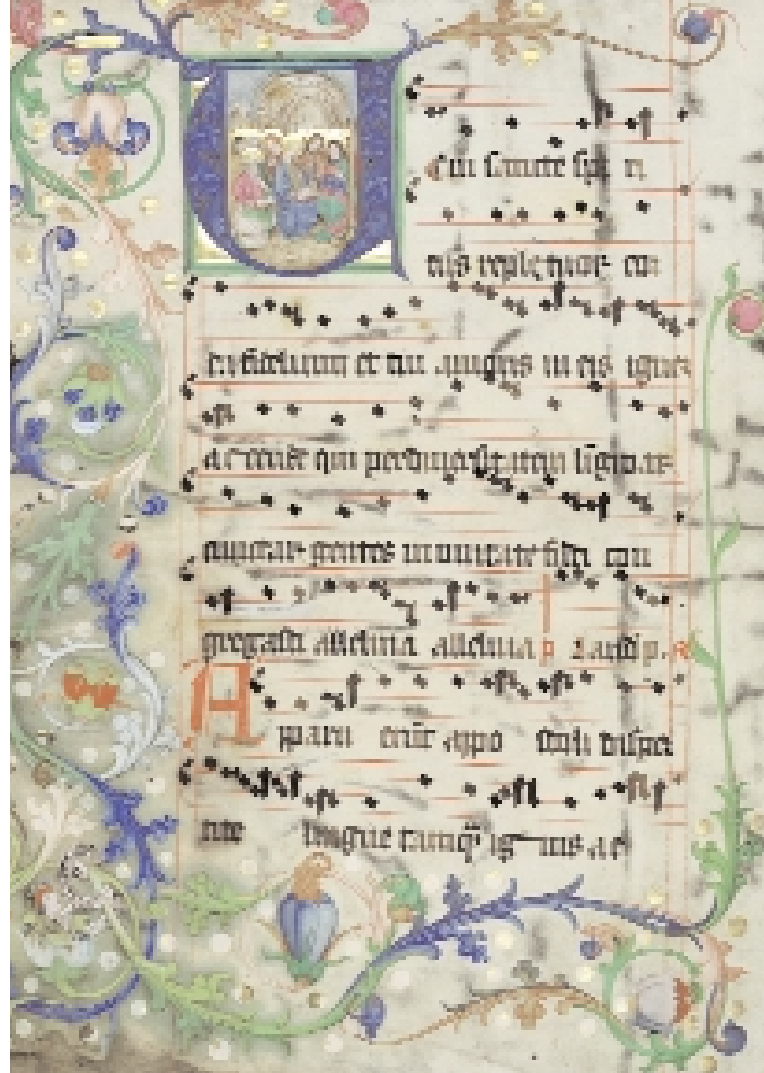 Veni sancte spiri
tus reple tuor cor
da fidelium et tui amoris in eis ignem
accende qui per diuersitatem lingwar
cunctar gentes in unitate fidei con
gregasti alleluia alleluia p
Apparu erūt apo stoli disper
tite lingue tamq̄ ig nis ac